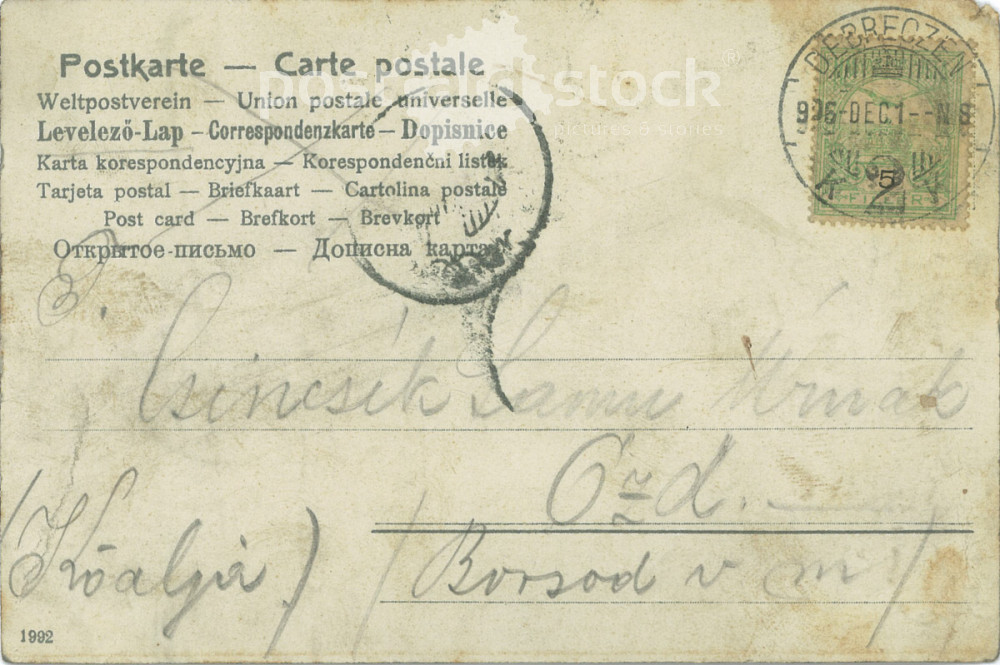 Postkarte — Carte postale
Weltpostverein — Union postale universelle
Levelező-Lap – Correspondenzkarte – Dopisnice
Karta korespondencyjna — Korespondenčni listek
Tarjeta postal — Briefkaart — Cartolina postale
Post card — Brefkort — Brevkort
Открытое-письмо — Дописна карта
DEBRECZEN
926-DEC.1--N8
5
FILLÉR
2
postcard stock
pictures & stories
Csincsék Samu Úrnak
Ózd.
(Kőalja)
/Borsod v m/
1992